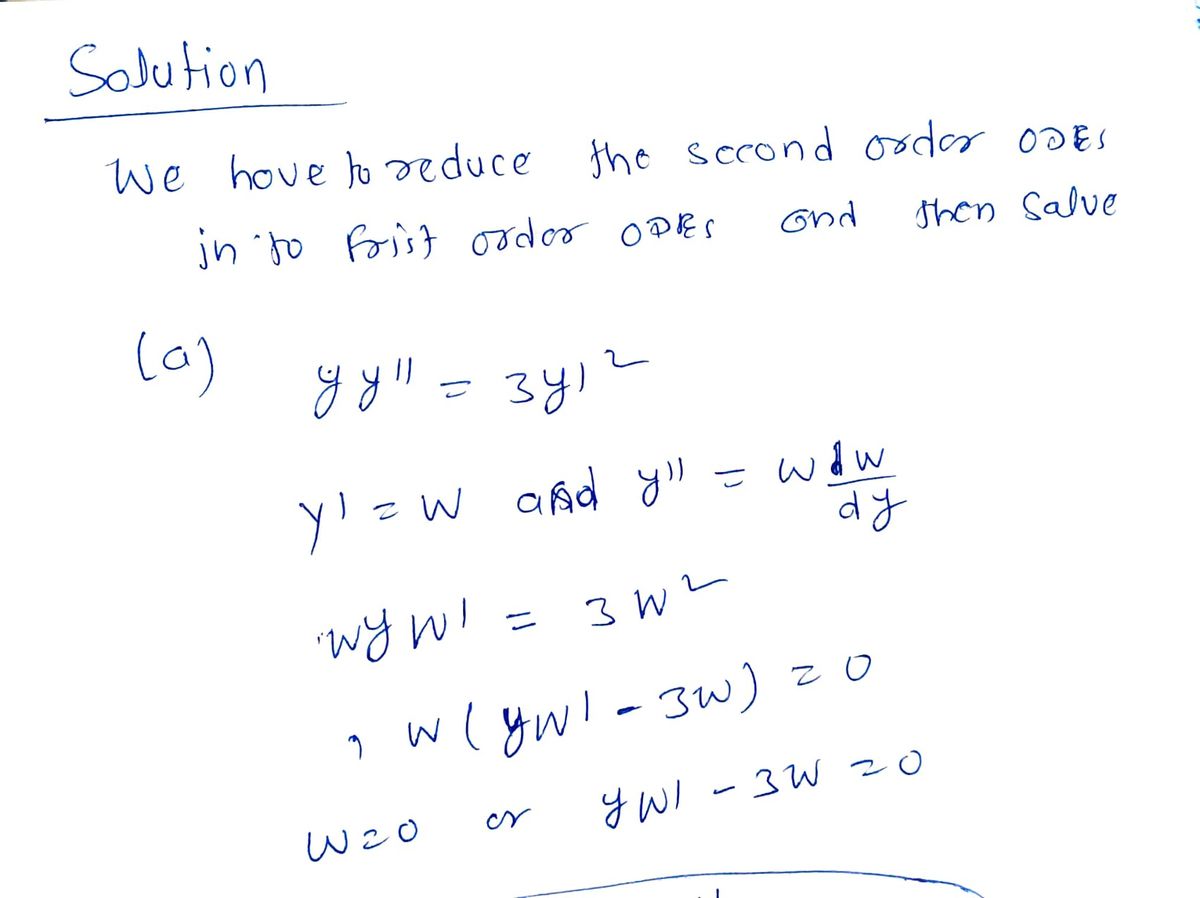 Solution
We hove to reduce the second order ODEs
in to frist order ODEs and then Salve
(a) yy'' = 3y'²
y' = w and y'' = w dw/dy
wyw' = 3w²
, w(yw' - 3w) = 0
w=0 or yw' - 3w = 0